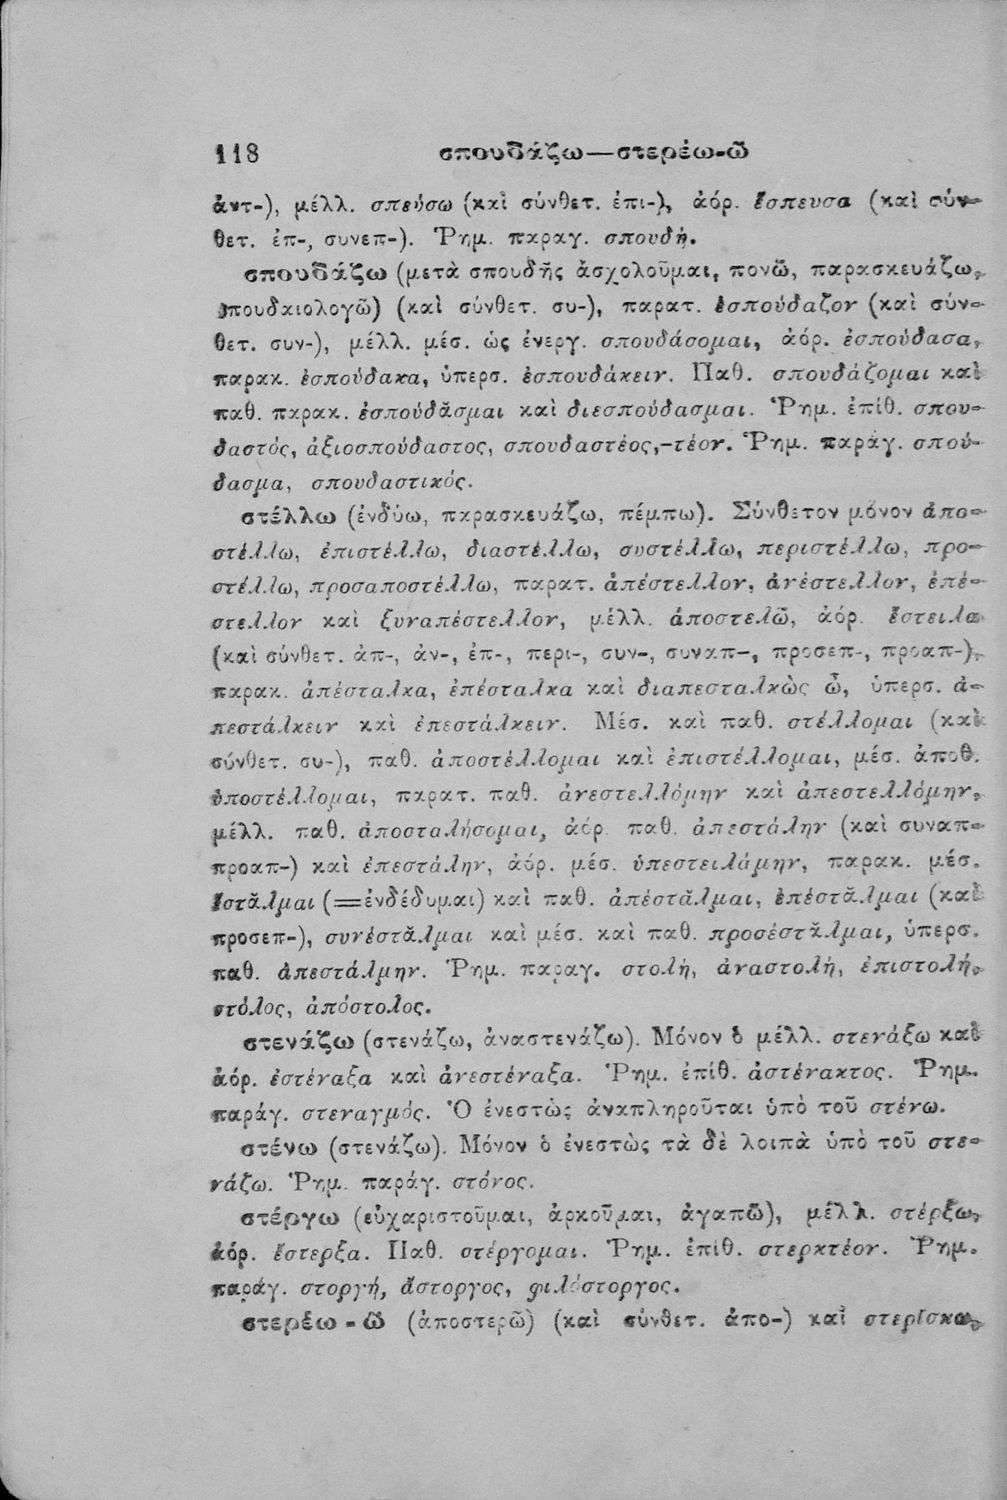 118 σπουδάζω—στερέω-ῶ
ἀντ-), μέλλ. σπεύσω (καὶ σύνθετ. ἐπι-), ἀόρ. ἔσπευσα (καὶ σύν-
θετ. ἐπ-, συνεπ-). Ῥημ. παραγ. σπουδή.
σπουδάζω (μετὰ σπουδῆς ἀσχολοῦμαι, πονῶ, παρασκευάζω,
σπουδαιολογῶ) (καὶ σύνθετ. συ-), παρατ. ἐσπούδαζον (καὶ σύν-
θετ. συν-), μέλλ. μέσ. ὡς ἐνεργ. σπουδάσομαι, ἀόρ. ἐσπούδασα,
παρακ. ἐσπούδακα, ὑπερσ. ἐσπουδάκειν. Παθ. σπουδάζομαι καὶ
παθ. παρακ. ἐσπούδᾰσμαι καὶ διεσπούδασμαι. Ῥημ. ἐπίθ. σπου-
δαστός, ἀξιοσπούδαστος, σπουδαστέος,-τέον. Ῥημ. παράγ. σπού-
δασμα, σπουδαστικός.
στέλλω (ἐνδύω, παρασκευάζω, πέμπω). Σύνθετον μόνον ἀπο-
στέλλω, ἐπιστέλλω, διαστέλλω, συστέλλω, περιστέλλω, προ-
στέλλω, προσαποστέλλω, παρατ. ἀπέστελλον, ἀνέστελλον, ἐπέ-
στελλον καὶ ξυναπέστελλον, μέλλ. ἀποστελῶ, ἀόρ. ἔστειλα
(καὶ σύνθετ. ἀπ-, ἀν-, ἐπ-, περι-, συν-, συναπ-, προσεπ-, προαπ-),
παρακ. ἀπέσταλκα, ἐπέσταλκα καὶ διαπεσταλκὼς ὦ, ὑπερσ. ἀ-
πεστάλκειν καὶ ἐπεστάλκειν. Μέσ. καὶ παθ. στέλλομαι (καὶ
σύνθετ. συ-), παθ. ἀποστέλλομαι καὶ ἐπιστέλλομαι, μέσ. ἀποθ.
ὑποστέλλομαι, παρατ. παθ. ἀνεστελλόμην καὶ ἀπεστελλόμην,
μέλλ. παθ. ἀποσταλήσομαι, ἀόρ. παθ. ἀπεστάλην (καὶ συναπ-
προαπ-) καὶ ἐπεστάλην, ἀόρ. μέσ. ὑπεστειλάμην, παρακ. μέσ.
ἔστᾰλμαι (=ἐνδέδυμαι) καὶ παθ. ἀπέστᾰλμαι, ἐπέστᾰλμαι (καὶ
προσεπ-), συνέστᾰλμαι καὶ μέσ. καὶ παθ. προσέστᾰλμαι, ὑπερσ.
παθ. ἀπεστάλμην. Ῥημ. παραγ. στολή, ἀναστολή, ἐπιστολή,
στόλος, ἀπόστολος.
στενάζω (στενάζω, ἀναστενάζω). Μόνον ὁ μέλλ. στενάξω καὶ
ἀόρ. ἐστέναξα καὶ ἀνεστέναξα. Ῥημ. ἐπίθ. ἀστένακτος. Ῥημ.
παράγ. στεναγμός. Ὁ ἐνεστὼς ἀναπληροῦται ὑπὸ τοῦ στένω.
στένω (στενάζω). Μόνον ὁ ἐνεστὼς τὰ δὲ λοιπὰ ὑπὸ τοῦ στε-
νάζω. Ῥημ. παράγ. στόνος.
στέργω (εὐχαριστοῦμαι, ἀρκοῦμαι, ἀγαπῶ), μέλλ. στέρξω,
ἀόρ. ἔστερξα. Παθ. στέργομαι. Ῥημ. ἐπίθ. στερκτέον. Ῥημ.
παράγ. στοργή, ἄστοργος, φιλόστοργος.
στερέω - ῶ (ἀποστερῶ) (καὶ σύνθετ. ἀπο-) καὶ στερίσκω,